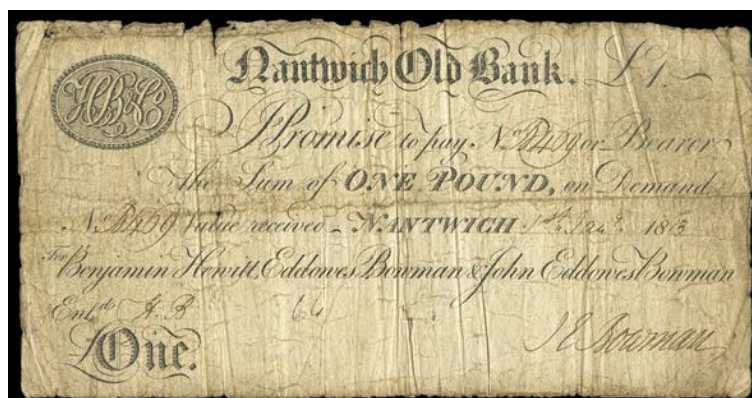 HB&Co
Nantwich Old Bank. £1.
I Promise to pay No. B469 or Bearer
the Sum of ONE POUND, on Demand
No. B469 Value received NANTWICH 1st Jany. 1813
For Benjamin Hewitt, Eddowes Bowman & John Eddowes Bowman
Entd. H. B
£One. J E Bowman